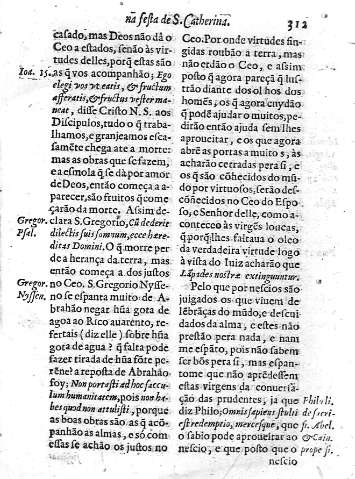 nã festa de S. Catherina. 312
casado, mas Deos não dá o
Ceo a estados, senão às vir
tudes delles, porq̃ estas são
Ioã. 15. as q̃ vos acompanhão; Ego
elegi vos vt eatis, & fructum
afferatis, & fructus vester ma-
neat, disse Cristo N. S. aos
Discipulos, tudo o q̃ traba-
lhamos, e granjeamos esca-
samẽte chega ate a morte:
mas as obras que se fazem,
e a esmola q̃ se dà por amor
de Deos, entaõ começa a a-
parecer, são fruitos q̃ come
çarão da morte. Assim de-
Gregor. clara S. Gregorio, Cũ dederit
Psal. dilectis suis somnum, ecce hære
ditas Domini. O q̃ morre per
de a herança da terra, mas
então começa a dos justos
Gregor. no Ceo. S. Gregorio Nysse-
Nyssen. no se espanta muito de A-
brahão negar hũa gota de
agoa ao Rico auarento, re-
fertais (diz elle) sobre hũa
gota de agua? q̃ falta pode
fazer tirada de hũa fõte pe-
rẽne? a reposta de Abrahão
foy; Non portasti ad hoc sæcu-
lum humanitatem, pois non ha-
bes quod non attulisti, porque
as boas obras são as q̃ acõ-
panhão as almas, e só com
essas se achão os justos no
Ceo. Por onde virtudes fin-
gidas roubão a terra, mas
não erdão o Ceo, e assim
posto q̃ agora pareçã q̃ lus-
trão diante dos olhos dos
homẽs, os q̃ agora cuydão
q̃ podẽ ajudar o muitos, pe-
dirão então ajuda sem lhes
aproueitar, e os que agora
abrẽ as portas a muitos, às
acharão cerradas pera si, e
os q̃ são cõhecidos do mũ-
do por virtuosos, serão des-
cõhecidos no Ceo do Espo
so, e Senhor delle, como a-
conteceo às virgẽs loucas,
q̃ porq̃ lhes faltaua o oleo
da verdadeira virtude logo
à vista do Iuiz acharão que
Lãpades nostræ extinguuntur.
Pelo que por nescios são
julgados os que viuem de
lẽbrãças do mũdo, e descui
dados da alma, e estes não
prestão pera nada, e nam
me espãto, pois não sabem
ser bõs pera si, mas espan-
tome que não aprẽdessem
estas virgens da conuersa-
ção das prudentes, ja que
diz Philo; Omnis sapiens stulti
est redemptio, mercesque, que
o sabio pode aproueitar ao
nescio, e que posto que o
Philo li.
de servi-
fi. Abel.
& Cain.
prope fi.
nescio